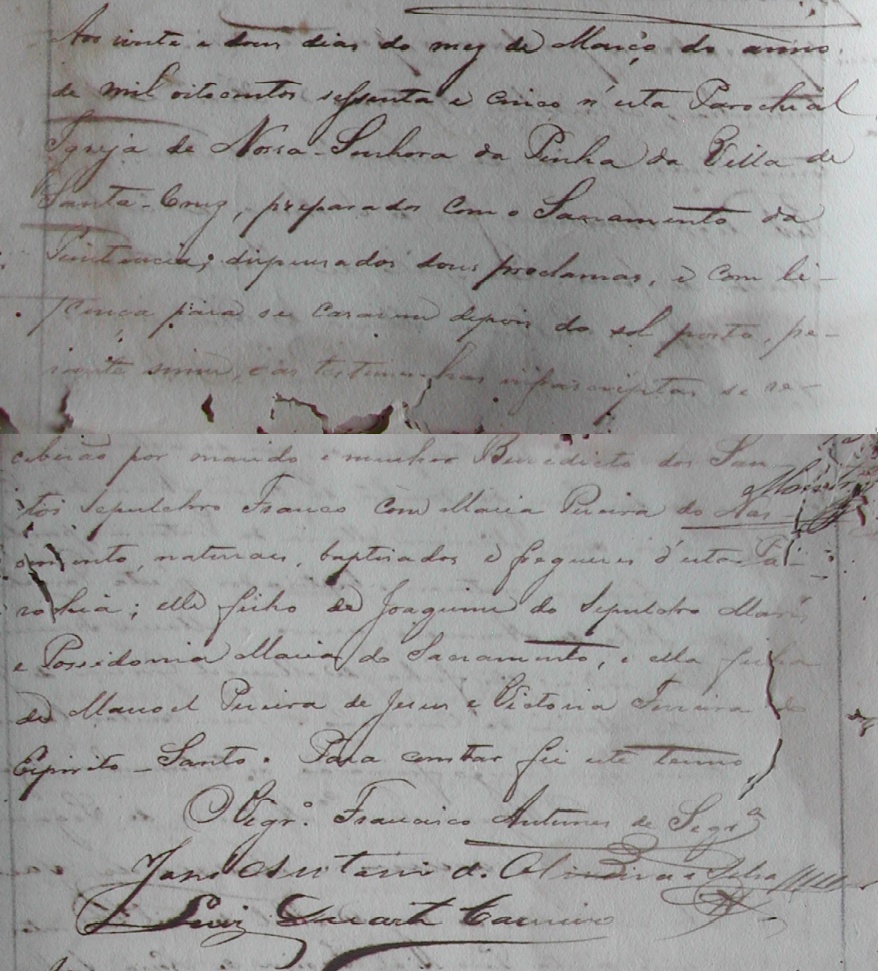 Aos vinte e dous dias do mez de Março do anno
de mil oitocentos sessenta e cinco n'esta Parochial
Igreja de Nossa-Senhora da Penha da Villa de
Santa-Cruz, preparados com o Sacramento da
Penitencia; dispensados dous proclamas, e com li-
cença para se casarem depois do sol posto, pe-
rante mim, e as testemunhas infrascriptas se re-
ceberão por marido e mulher Benedicto dos San-
tos Sepulchro Franco com Maria Pereira do Nas-
cimento, naturais, baptisados e freguezes d'esta Pa-
rochia; elle filho de Joaquim do Sepulchro
e Possidonia Maria do Sacramento, e ella filha
de Manoel Pereira de Jesus e Victoria Ferreira do
Espirito-Santo. Para constar fiz este termo
O Vigr.º Francisco Antunes de Segr.ª
José Antonio d. Oliveira e Silva
Luiz Duarte Carneiro